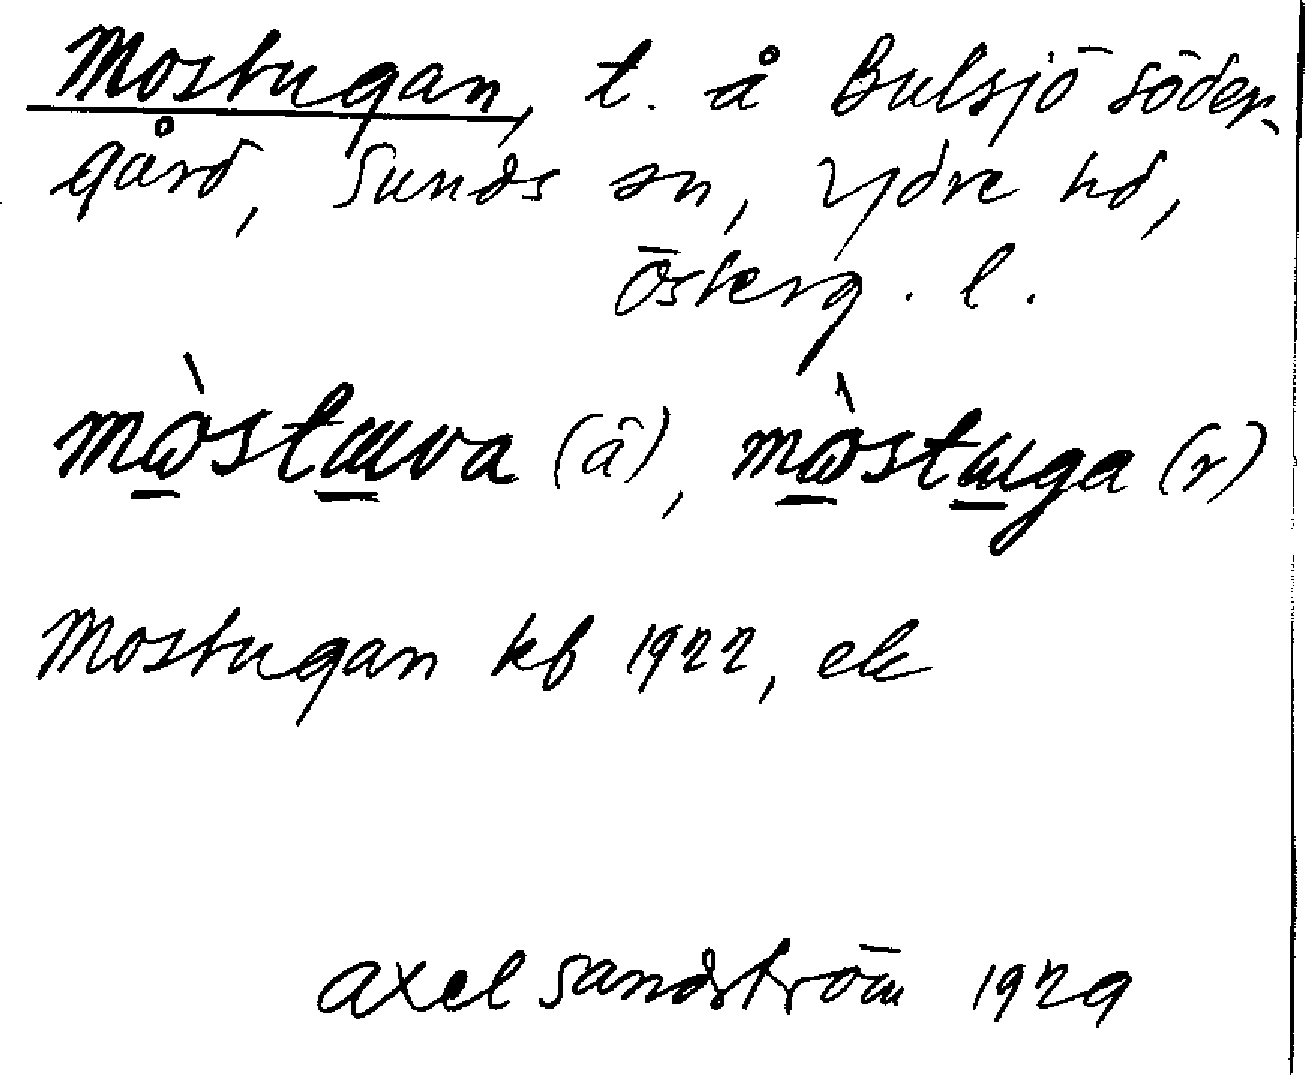 Mostugan, t. å Bulsjö Söder-
gård, Sunds sn, Ydre hd,
Österg. l.
mòstuva (ä), mòstuga (r)
Mostugan kb 1922, ek
Axel Sandström 1929